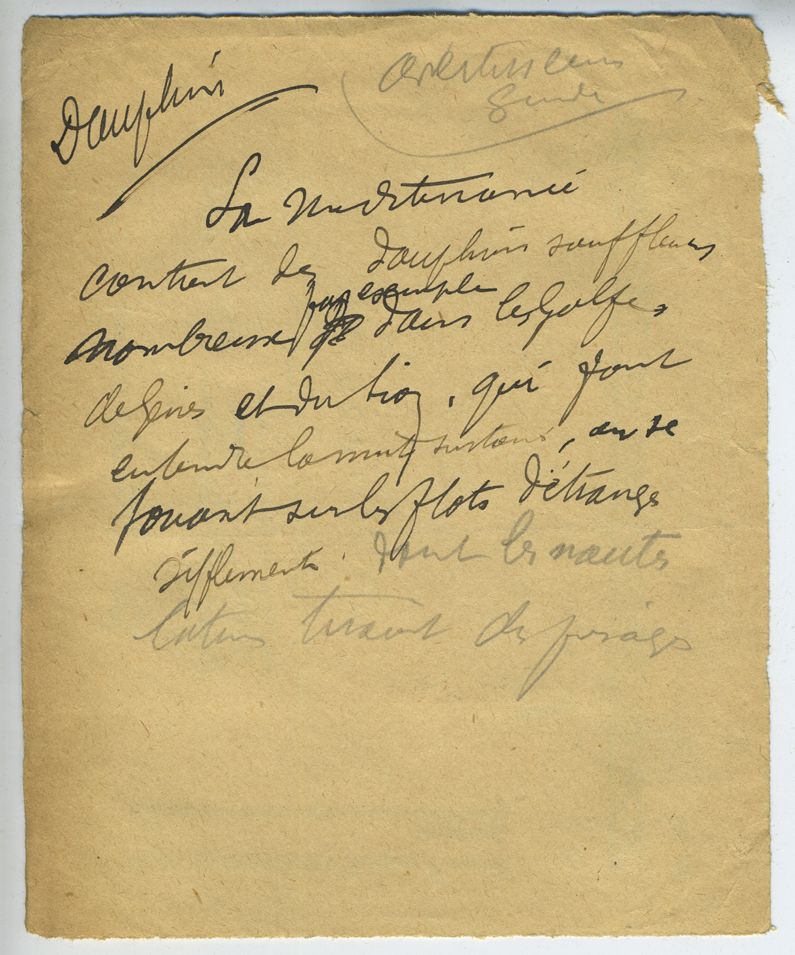 Dauphins
avertisseurs
guide
La Méditerranée
contient des dauphins souffleurs
nombreux par exemple dans les Golfes
de Gênes et du Lion, qui font
entendre la nuit surtout, en se
jouant sur les flots d'étranges
sifflements. dont les nautes
latins tiraient des présages